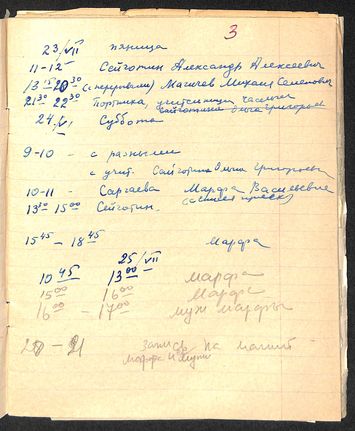 3
23/VII пятница
11-12 Сейготин Александр Алексеевич
13 15 20 30 (с перерывами) Магичев Михаил Семенович
21 30 22 30 Ольга Григорьев
24/VII Суббота
9-10 с разными
с учит. Сайготина Ольга Григорьевна
10-11 - Саргаева Марфа Васильевна
13 30 15 00 Сейготин
15 45 - 18 45 Марфа
25/VII
10 45 13 00 Марфа
15 00 16 00 Марфа
16 00 - 17 00 муж марфы
20 - 21 запись на
марфа и мужа